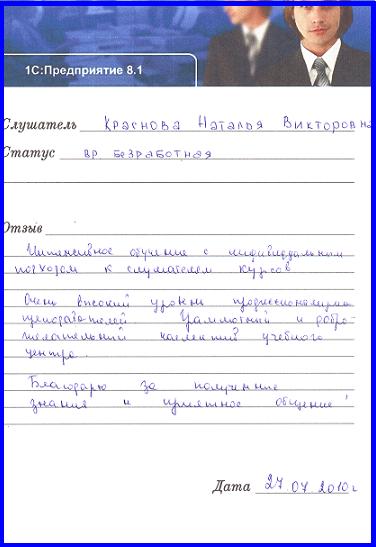 1С:Предприятие 8.1
Слушатель Краснова Наталья Викторовна
Статус вр. безработная
Отзыв
Интенсивное обучение с индивидуальным
подходом к слушателям курсов
Очень высокий уровень профессионализма
преподавателей. Грамотный и добро-
желательный коллектив учебного
центра.
Благодарю за полученные
знания и приятное общение!
Дата 27.07.2010г